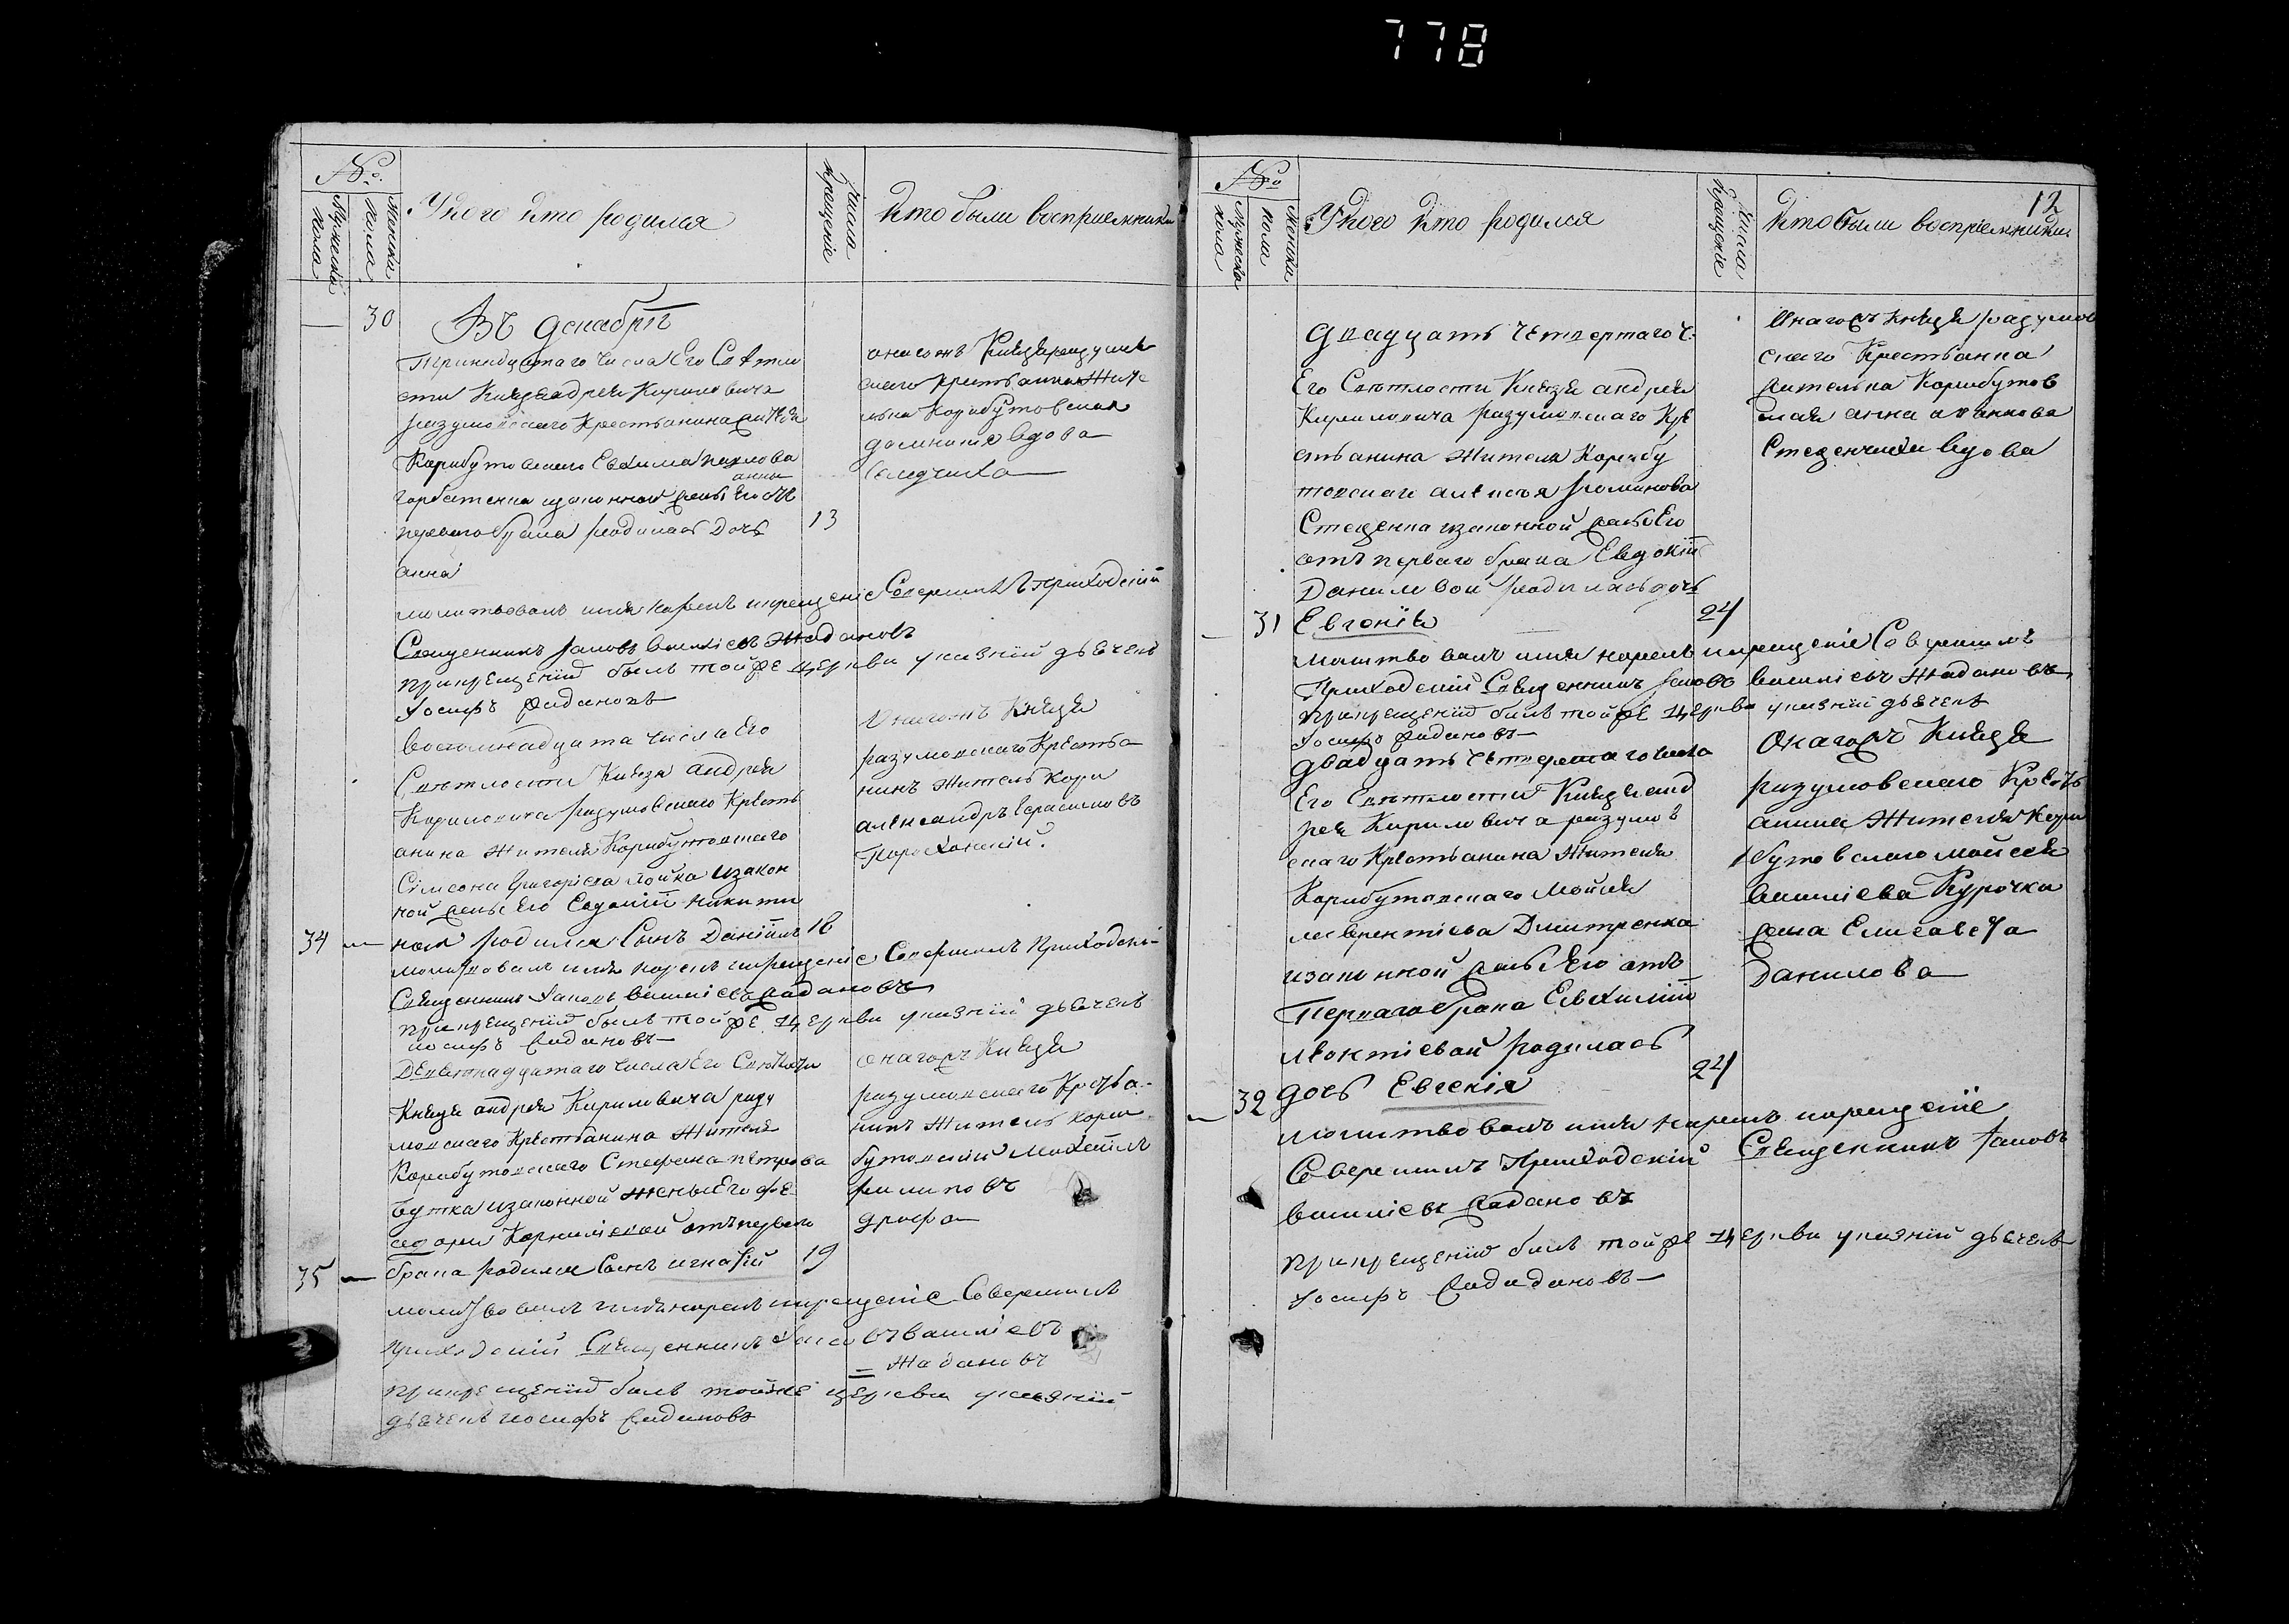 778
№
Мужеска пола
Женска пола
У кого кто родился
Числа крещенїе
Кто были восприемники
30
Въ декабрѣ
Тринадцатаго числа Его Светло
сти Князя андрея Кириловича
разумовскаго крестьянина жителя
Корибутовскаго Евхима павлова
анны
горбатенка изаконной жены Его отъ
перваго брака родилась Дочь
13
анна
онагожъ Князя разумов
скаго крестьянка жите
льна Корибутовская
вдова
молитвовалъ имя нарекъ икрещеніе Совершилъ приходскїй
Священникъ Іаковъ василіевъ Жадановъ
прикрещенїи былъ тойже церкви указнїй дьячекъ
Іосифъ жадановъ
восемнадцата числа Его
Светлости Князя андрея
Кириловича разумовскаго крестья
анина жителя Корибутовскаго
Сімеона григоріева изакон
ной жены Его Евдокїи никити
34
ной родился Сынъ Данїилъ
18
Онагожъ Князя
разумовскаго крестья
нинъ житель Кори
александръ герасимовъ
молитвовалъ имя нарекъ икрещеніе Совершилъ приходскі
Священникъ Іаковъ василіевъ жадановъ
прикрещенїи былъ тойже церкви указнїй дьячекъ
іосифъ жадановъ
Девятонадцатаго числа Его Светлости
Князя андрея Кириловича разу
мовскаго крестьянина жителя
Корибутовскаго Стефана петрова
изаконной жены Его фе
одоры Корниліевой отъ перваго
35
брака родился Сынъ игнатій
19
онагожъ Князя
разумовскаго крестья
нинъ житель кори
бутовскій Михаилъ
филиповъ
молитвовалъ имя нарекъ икрещеніе Совершилъ
приходскїй Священникъ Іаковъ василіевъ
Жадановъ
прикрещенїи былъ тойже церкви указнїй
дьячекъ иосифъ жадановъ
№
Мужеска пола
Женска пола
У кого кто родился
Числа Крещенїе
Кто были воспріемники
12
двадцать четвертаго ч:
Его Светлости Князя андрея
Кириловича разумовскаго кре
стьянина жителя Корибу
товскаго алексея романова
Стеценка изаконной жены Его
отъ перваго брака Евдокїи
Даниловой родилась дочь
31
Евгенїя
24
Онагожъ князя разумов
скаго Крестьянка
жителька Корибутов
ская анна
Стеценчиха вдова
молитвовалъ имя нарекъ икрещеніе Совершилъ
Приходскїй Священникъ Іаковъ василіевъ Жадановъ
прикрещенїи былъ тойже церкви указнїй дьячекъ
Іосифъ жадановъ
двадцать четвертаго числа
Его Светлости Князя анд
рея Кириловича разумов
скаго крестьянина жителя
Корибутовскаго Мойсея
леверентіева Дмитренка
изаконной жены Его отъ
Перваго брака Евхимїи
леонтіевой родилась
32
дочь Евгенія
24
Онагожъ Князя
разумовскаго Кресть
анина жителя Кори
бутовскаго мойсея
василіева Курочки
жена Елисавета
Данилова
молитвовалъ имя нарекъ икрещеніе
Совершилъ Приходскїй Священникъ Іаковъ
василіевъ жадановъ
прикрещенїи былъ тойже церкви указнїй дьячекъ
Іосифъ